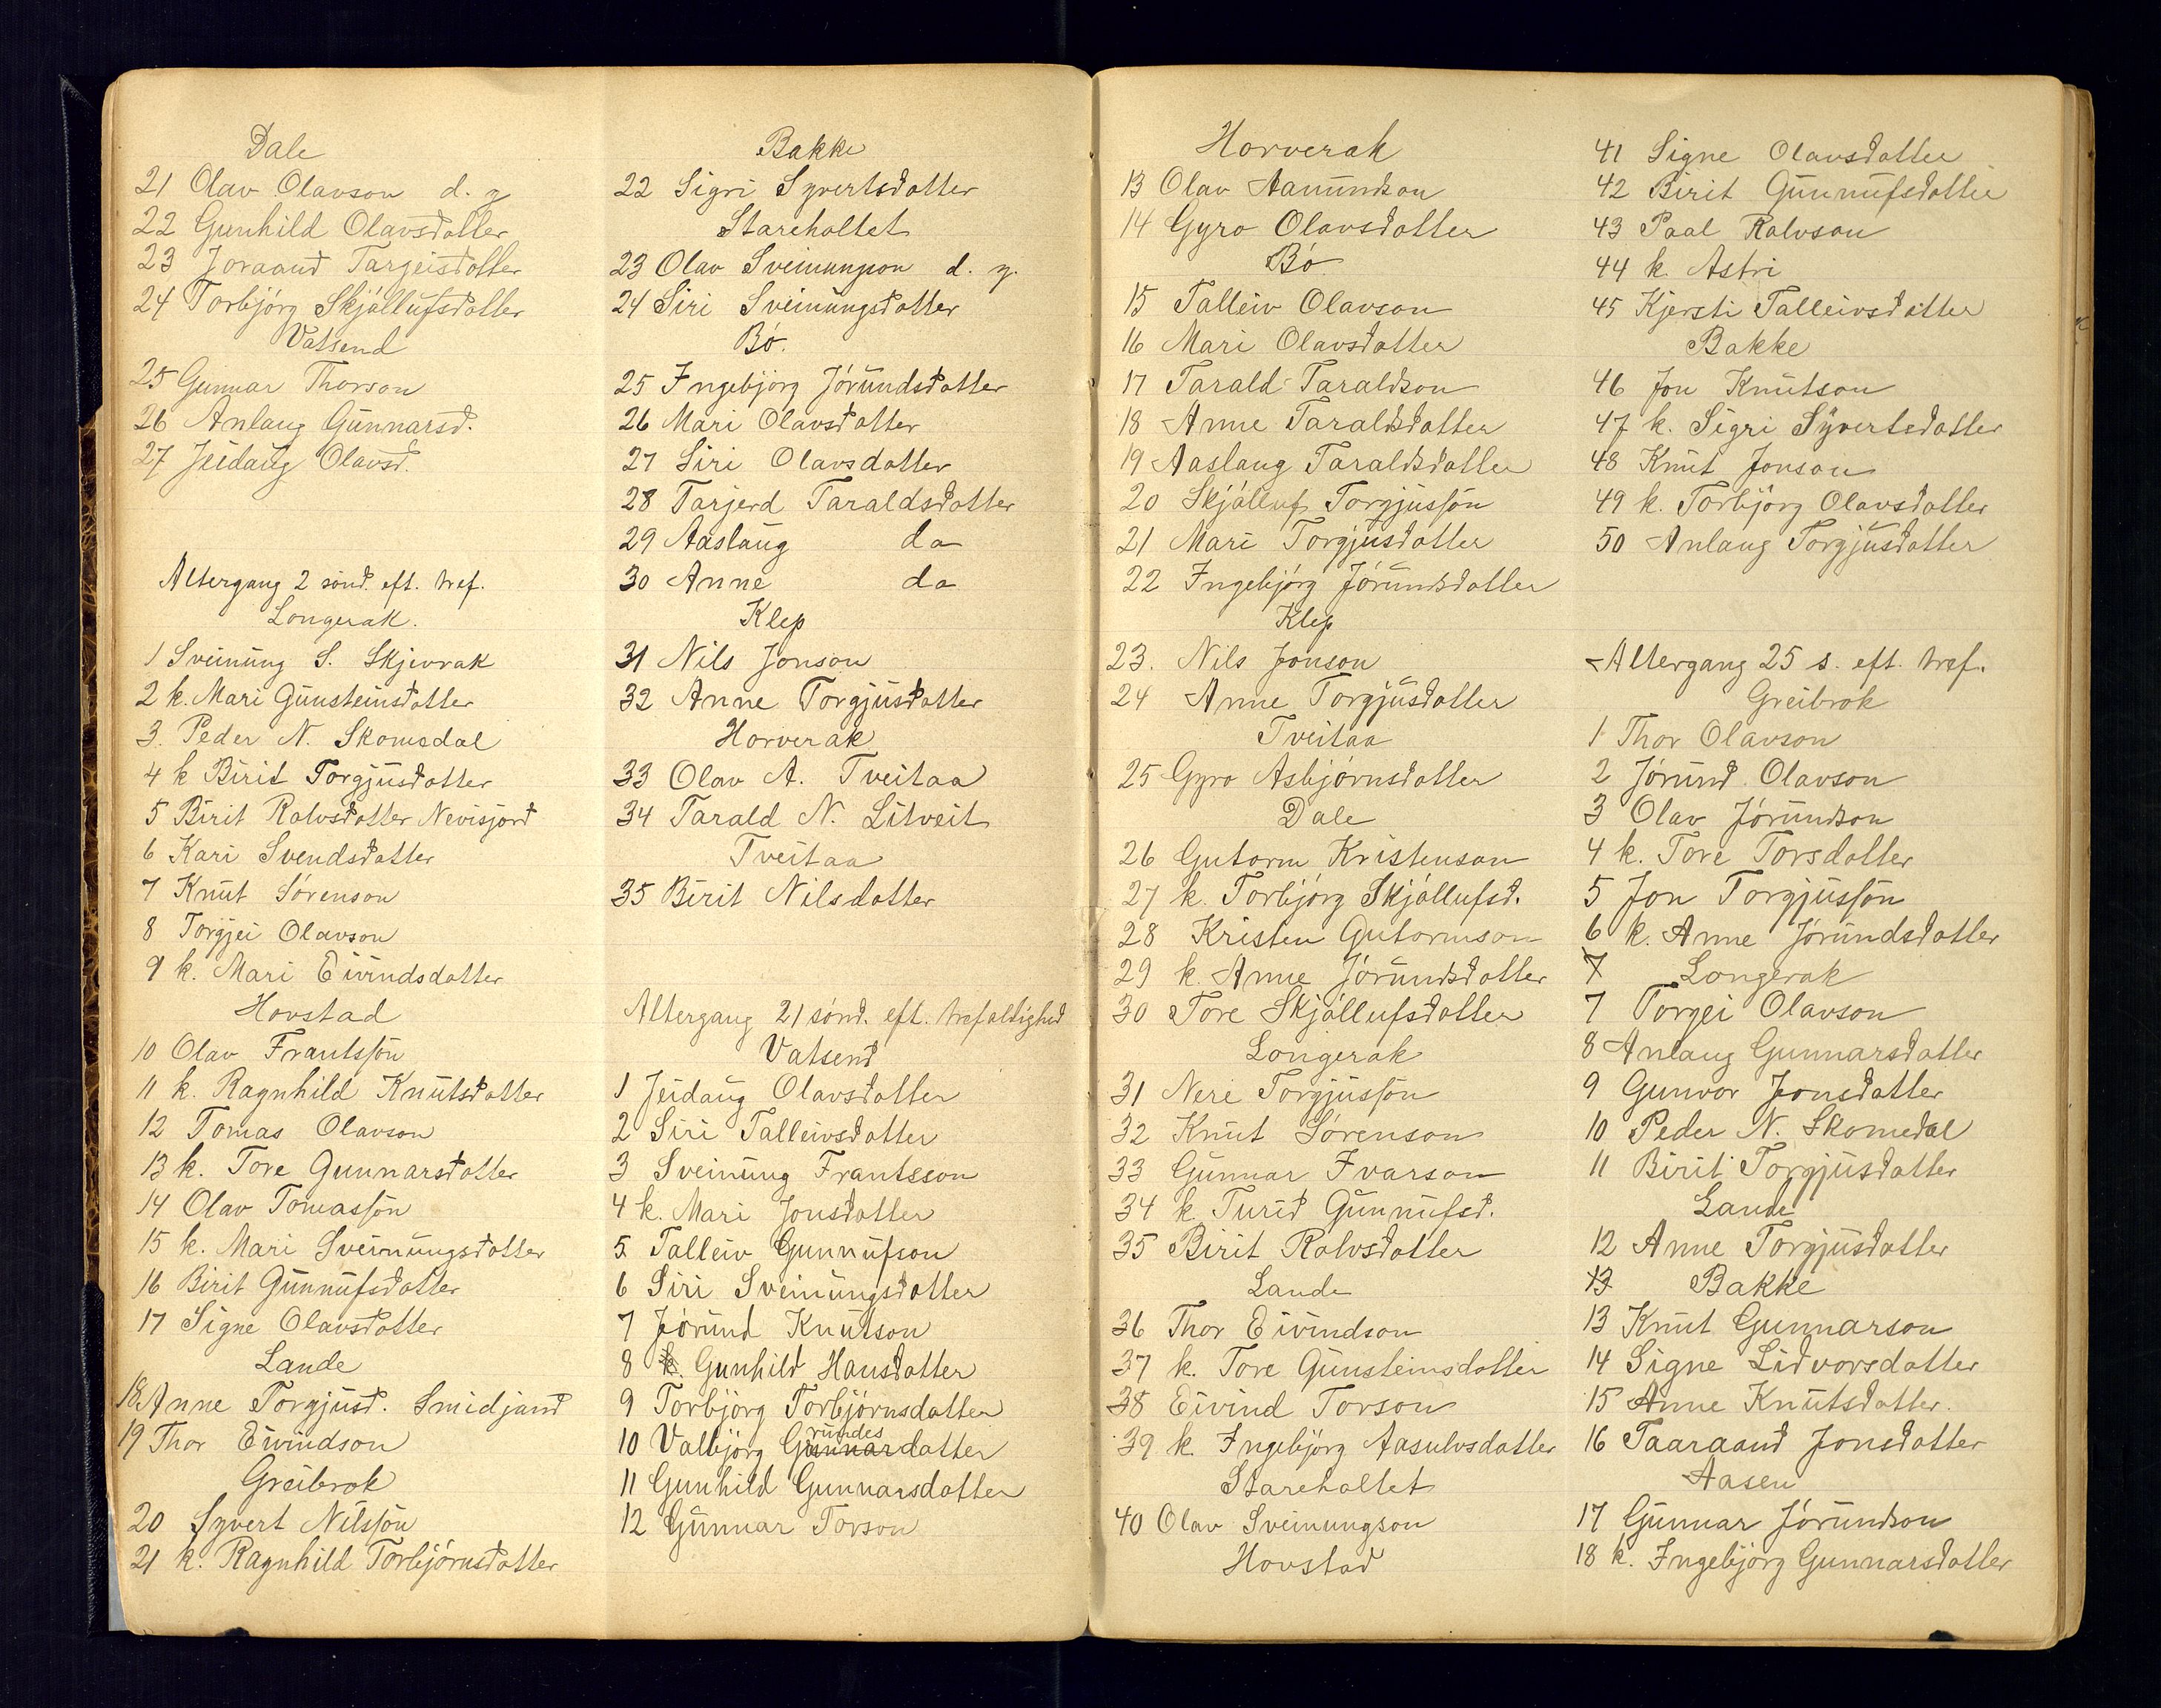 Dale
21 Olav Olavson d. y
22 Gunhild Olavsdatter
23 Joraand Targeisdotter
24 Torbjörg Skjällufsdatter
Vatsend
25 Gunnar Thorson
26 Anlaug Gunnarsd.
27 Jeidaug Olavsd.
Altergang 2 sönd. eft. tref.
Longerak.
1 Sveinung S. Skjevrak
2 k. Mari Gunsteinsdatter
3. Peder N. Skomsdal
4 k Birit Torgjusdatter
5 Birit Rolvsdatter Nevisjord
6 Kari Svendsdatter
7 Knut Sörenson
8 Torgjei Olavson
9 k. Mari Eivindsdatter
Hovstad
10 Olav Frantssön
11 k. Ragnhild Knutsdatter
12 Tomas Olavson
13 k. Tore Gunnarsdatter
14 Olav Tomassön
15 k. Mari Sveinungsdatter
16 Birit Gunnufsdatter
17 Signe Olavsdatter
Lande
18 Anne Torgjusd. Smidjand
19 Thor Eivindson
Greibrok
20 Syvert Nilssön
21 k. Ragnhild Torbjörnsdatter
Bakke
22 Sigri Syvertsdatter
Stareholtet
23 Olav Sveinungson d. y.
24 Siri Sveinungsdatter
Bö.
25 Ingebjörg Jörundsdatter
26 Mari Olavsdatter
27 Siri Olavsdatter
28 Tarjerd Taraldsdatter
29 Aaslaug do
30 Anne do
Klep
31 Nils Jonson
32 Anne Torgjusdatter
Horverak
33 Olav A. Tveitaa
34 Tarald N. Litveit
Tveitaa
35 Birit Nilsdatter
Altergang 21 sönd. eft. trefoldighed
Vatsend
1 Jeidaug Olavsdatter
2 Siri Talleivsdatter
3 Sveinung Frantsson
4 k. Mari Jonsdatter
5. Talleiv Gunnufson
6 Siri Sveinungsdatter
7 Jörund Knutson
8 k. Gunhild Hansdatter
9 Torbjörg Torbjörnsdatter
rundes
10 Valbjörg Gunnardatter
11 Gunhild Gunnarsdatter
12 Gunnar Torson
Horverak
13 Olav Aamundson
14 Gyro Olavsdatter
Bö
15 Talleiv Olavson
16 Mari Olavsdatter
17 Tarald Taraldson
18 Anne Taraldsdatter
19 Aaslaug Taraldsdatter
20 Skjälluf Torgjussön
21 Mari Torgjusdatter
22 Ingebjörg Jörundsdatter
Klep
23. Nils Jonson
24 Anne Torgjusdatter
Tveitaa
25 Gyro Asbjörnsdatter
Dale
26 Gutorm Kristenson
27 k. Torbjörg Skjällufsd.
28 Kristen Gutormson
29 k. Anne Jörundsdatter
30 Tore Skjällufsdatter
Longerak
31 Neri Torgjussön
32 Knut Sörenson
33 Gunnar Ivarson
34 k Turid Gunnufsd.
35 Birit Rolvsdatter
Lande
36 Thor Eivindson
37 k. Tore Gunsteinsdatter
38 Eivind Torson
39 k. Ingebjörg Aasulvsdatter
Stareholtet
40 Olav Sveinungson
Hovstad
41 Signe Olavsdatter
42 Birit Gunnufsdatter
43 Paal Rolvson
44 k. Astri
45 Kjersti Talleivsdatter
Bakke
46 Jon Knutson
47 k. Sigri Syvertsdatter
48 Knut Jonson
49 k. Torbjörg Olavsdatter
50 Anlaug Torgjusdatter
Altergang 25 s. eft. tref.
Greibrok
1 Thor Olavson
2 Jörund Olavson
3 Olav Jörundson
4 k. Tore Torsdatter
5 Jon Torgjussön
6 k. Anne Jörundsdatter
7 Longerak
7 Torgei Olavson
8 Anlaug Gunnarsdatter
9 Gunvor Jonsdatter
10 Peder N. Skomedal
11 Birit Torgjusdatter
Lande
12 Anne Torgjusdatter
13 Bakke
13 Knut Gunnarson
14 Signe Lidvorsdatter
15 Anne Knutsdatter.
16 Taaraand Jonsdatter
Aasen
17 Gunnar Jörundson
18 k. Ingebjörg Gunnarsdatter